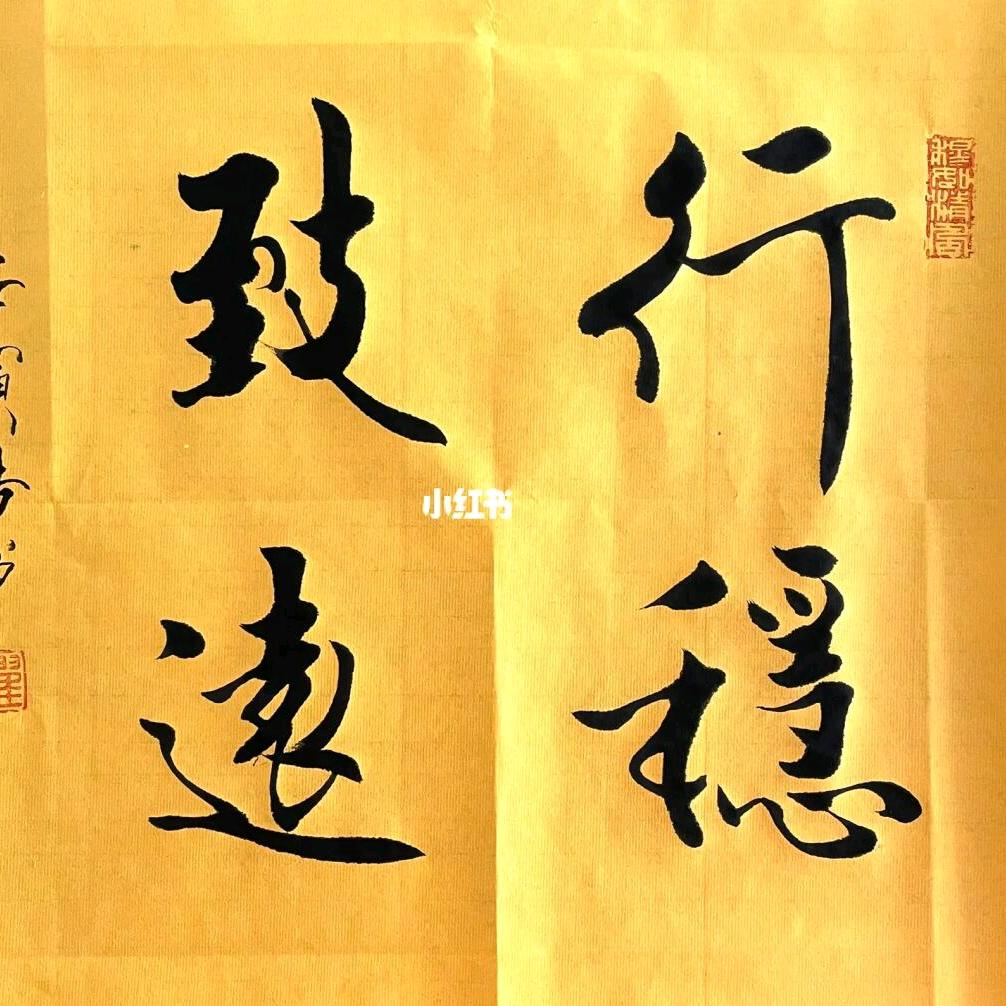 行穩
致遠
小红书